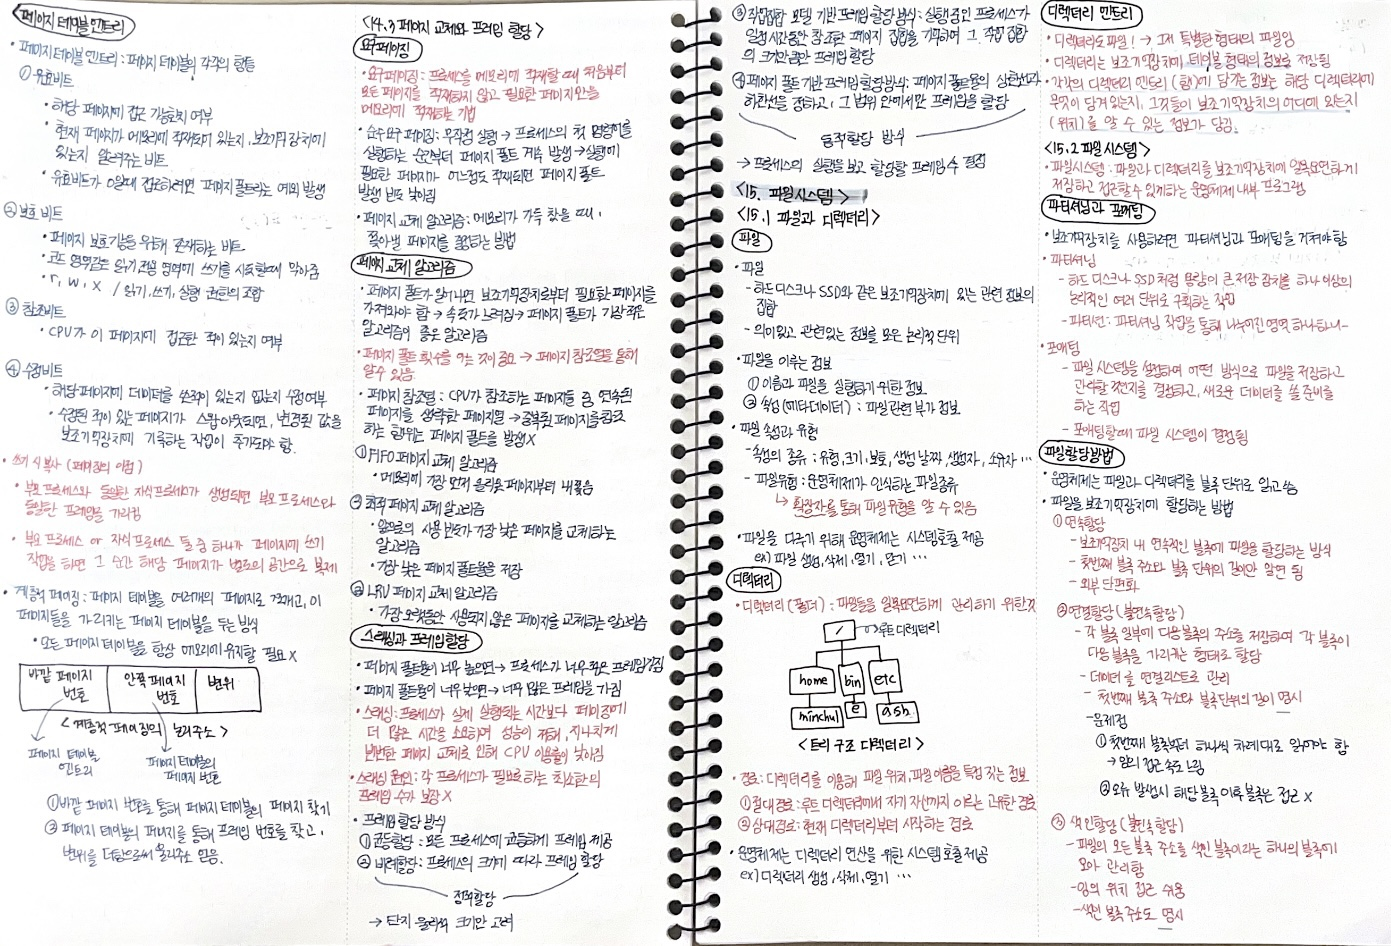 페이지 테이블 엔트리
• 페이지 테이블 엔트리 : 페이지 테이블의 각각의 행들
① 유효비트
• 해당 페이지에 접근 가능한지 여부
• 현재 페이지가 메모리에 적재되어 있는지, 보조기억장치에
있는지 알려주는 비트
• 유효비트가 0일때 접근하려면 페이지 폴트라는 예외 발생
② 보호 비트
• 페이지 보호기능을 위해 존재하는 비트
• 코드 영역같은 읽기 전용 영역에 쓰기를 시도할때 막아줌
• r, w, x / 읽기, 쓰기, 실행 권한의 조합
③ 참조비트
• CPU가 이 페이지에 접근한 적이 있는지 여부
④ 수정비트
• 해당 페이지에 데이터를 쓴적이 있는지 없는지 수정여부
• 수정된 적이 있는 페이지가 스왑아웃되면, 변경된 값을
보조기억장치에 기록하는 작업이 추가되야 함.
• 쓰기 시 복사 (페이징의 이점)
• 부모 프로세스와 동일한 자식프로세스가 생성되면 부모 프로세스와
동일한 프레임을 가리킴
• 부모 프로세스 or 자식 프로세스 둘 중 하나가 페이지에 쓰기
작업을 하면 그 순간 해당 페이지가 별도의 공간으로 복제
• 계층적 페이징 : 페이지 테이블을 여러개의 페이지로 쪼개고, 이
페이지들을 가리키는 페이지 테이블을 두는 방식
• 모든 페이지 테이블을 항상 메모리에 유지할 필요 X
바깥 페이지 번호 안쪽 페이지 번호 변위
< 계층적 페이징의 논리주소 >
페이지 테이블
엔트리
페이지 테이블의
페이지 번호
① 바깥 페이지 번호를 통해 페이지 테이블의 페이지 찾기
② 페이지 테이블의 페이지를 통해 프레임 번호를 찾고,
변위를 더함으로써 물리주소 얻음.
<14.3 페이지 교체와 프레임 할당>
요구 페이징
• 요구 페이징 : 프로세스를 메모리에 적재할 때 처음부터
모든 페이지를 적재하지 않고 필요한 페이지만을
메모리에 적재하는 기법
• 순수 요구 페이징 : 무작정 실행 → 프로세스의 첫 명령어를
실행하는 순간부터 페이지 폴트 계속 발생 → 실행에
필요한 페이지가 어느정도 적재되면 페이지 폴트
발생 빈도 낮아짐
• 페이지 교체 알고리즘 : 메모리가 가득 찼을 때,
쫓아낼 페이지를 결정하는 방법
페이지 교체 알고리즘
• 페이지 폴트가 일어나면 보조기억장치로부터 필요한 페이지를
가져와야 함 → 속도가 느려짐 → 페이지 폴트가 가장 적은
알고리즘이 좋은 알고리즘
• 페이지 폴트 횟수를 아는 것이 중요 → 페이지 참조열을 통해
알수 있음
• 페이지 참조열 : CPU가 참조하는 페이지들 중 연속된
페이지를 생략한 페이지열 → 중복된 페이지를 참조
하는 행위는 페이지 폴트를 발생 X
① FIFO 페이지 교체 알고리즘
• 메모리에 가장 먼저 올라온 페이지부터 내쫓음
② 최적 페이지 교체 알고리즘
• 앞으로의 사용 빈도가 가장 낮은 페이지를 교체하는
알고리즘
• 가장 낮은 페이지 폴트율을 보장
③ LRU 페이지 교체 알고리즘
• 가장 오랫동안 사용되지 않은 페이지를 교체하는 알고리즘
스래싱과 프레임 할당
• 페이지 폴트율이 너무 높으면 → 프로세스가 너무 적은 프레임 가짐
• 페이지 폴트율이 너무 낮으면 → 너무 많은 프레임을 가짐
• 스래싱 : 프로세스가 실제 실행되는 시간보다 페이징에
더 많은 시간을 소요하여 성능이 저해, 지나치게
빈번한 페이지 교체로 인해 CPU 이용률이 낮아짐
• 스래싱 원인 : 각 프로세스가 필요로 하는 최소한의
프레임 수가 보장 X
• 프레임 할당 방식
① 균등할당 : 모든 프로세스에 균등하게 프레임 제공
② 비례할당 : 프로세스의 크기에 따라 프레임 할당
정적할당
→ 단지 물리적 크기만 고려
③ 작업집합 모델 기반 프레임 할당 방식 : 실행중인 프로세스가
일정 시간동안 참조한 페이지 집합을 기억하여 그 작업 집합
의 크기만큼만 프레임 할당
④ 페이지 폴트 기반 프레임 할당방식 : 페이지 폴트율의 상한선과
하한선을 정하고, 그 범위 안에서만 프레임을 할당
동적할당 방식
→ 프로세스의 실행을 보고 할당할 프레임 수 결정
<15. 파일시스템>
<15.1 파일과 디렉터리>
파일
• 파일
- 하드 디스크나 SSD와 같은 보조기억장치에 있는 관련 정보의
집합
- 의미있고 관련있는 정보를 모은 논리적 단위
• 파일을 이루는 정보
① 이름과 파일을 실행하기 위한 정보
② 속성(메타데이터) : 파일 관련 부가 정보
• 파일 속성과 유형
- 속성의 종류 : 유형, 크기, 보호, 생성 날짜, 생성자, 소유자 …
- 파일유형 : 운영체제가 인식하는 파일종류
↳ 확장자를 통해 파일 유형을 알 수 있음
• 파일을 다루기 위해 운영체제는 시스템호출 제공
ex) 파일 생성, 삭제, 열기, 닫기 …
디렉터리
• 디렉터리(폴더) : 파일들을 일목요연하게 관리하기 위한것
/ → 루트 디렉터리
home bin etc
minchul e a.sh
<트리 구조 디렉터리>
• 경로 : 디렉터리를 이용해 파일 위치, 파일 이름을 특정 짓는 정보
① 절대 경로 : 루트 디렉터리에서 자기 자신까지 이르는 고유한 경로
② 상대경로 : 현재 디렉터리부터 시작하는 경로
• 운영체제는 디렉터리 연산을 위한 시스템 호출 제공
ex) 디렉터리 생성, 삭제, 열기 …
디렉터리 엔트리
• 디렉터리도 파일! → 그저 특별한 형태의 파일임
• 디렉터리는 보조기억장치에 테이블 형태의 정보로 저장됨
• 각각의 디렉터리 엔트리 (행)에 담기는 정보는 해당 디렉터리에
무엇이 담겨있는지, 그것들이 보조기억장치의 어디에 있는지
(위치)를 알 수 있는 정보가 담김.
<15.2 파일 시스템>
• 파일시스템 : 파일과 디렉터리를 보조기억장치에 일목요연하게
저장하고 접근할수 있게하는 운영체제 내부 프로그램
파티셔닝과 포매팅
• 보조기억장치를 사용하려면 파티셔닝과 포매팅을 거쳐야 함
• 파티셔닝
- 하드 디스크나 SSD처럼 용량이 큰 저장 장치를 하나 이상의
논리적인 여러 단위로 구획하는 작업
- 파티션 : 파티셔닝 작업을 통해 나누어진 영역 하나하나
• 포매팅
- 파일 시스템을 설정하여 어떤 방식으로 파일을 저장하고
관리할 것인지를 결정하고, 새로운 데이터를 쓸 준비를
하는 작업
- 포매팅할때 파일 시스템이 결정됨
파일할당방법
• 운영체제는 파일과 디렉터리를 블록 단위로 읽고 씀
• 파일을 보조기억장치에 할당하는 방법
① 연속할당
- 보조기억장치 내 연속적인 블록에 파일을 할당하는 방식
- 첫번째 블록 주소와 블록 단위의 길이만 알면 됨
- 외부 단편화
② 연결할당(불연속할당)
- 각 블록 일부에 다음 블록의 주소를 저장하여 각 블록이
다음 블록을 가리키는 형태로 할당
- 데이터를 연결리스트로 관리
- 첫번째 블록 주소와 블록단위의 길이 명시
- 문제점
① 첫번째 블록부터 하나씩 차례대로 읽어야 함
→ 임의 접근 속도 느림
② 오류 발생시 해당 블록 이후 블록은 접근 X
③ 색인할당(불연속할당)
- 파일의 모든 블록 주소를 색인 블록이라는 하나의 블록에
모아 관리함
- 임의 위치 접근 쉬움
- 색인 블록 주소도 명시